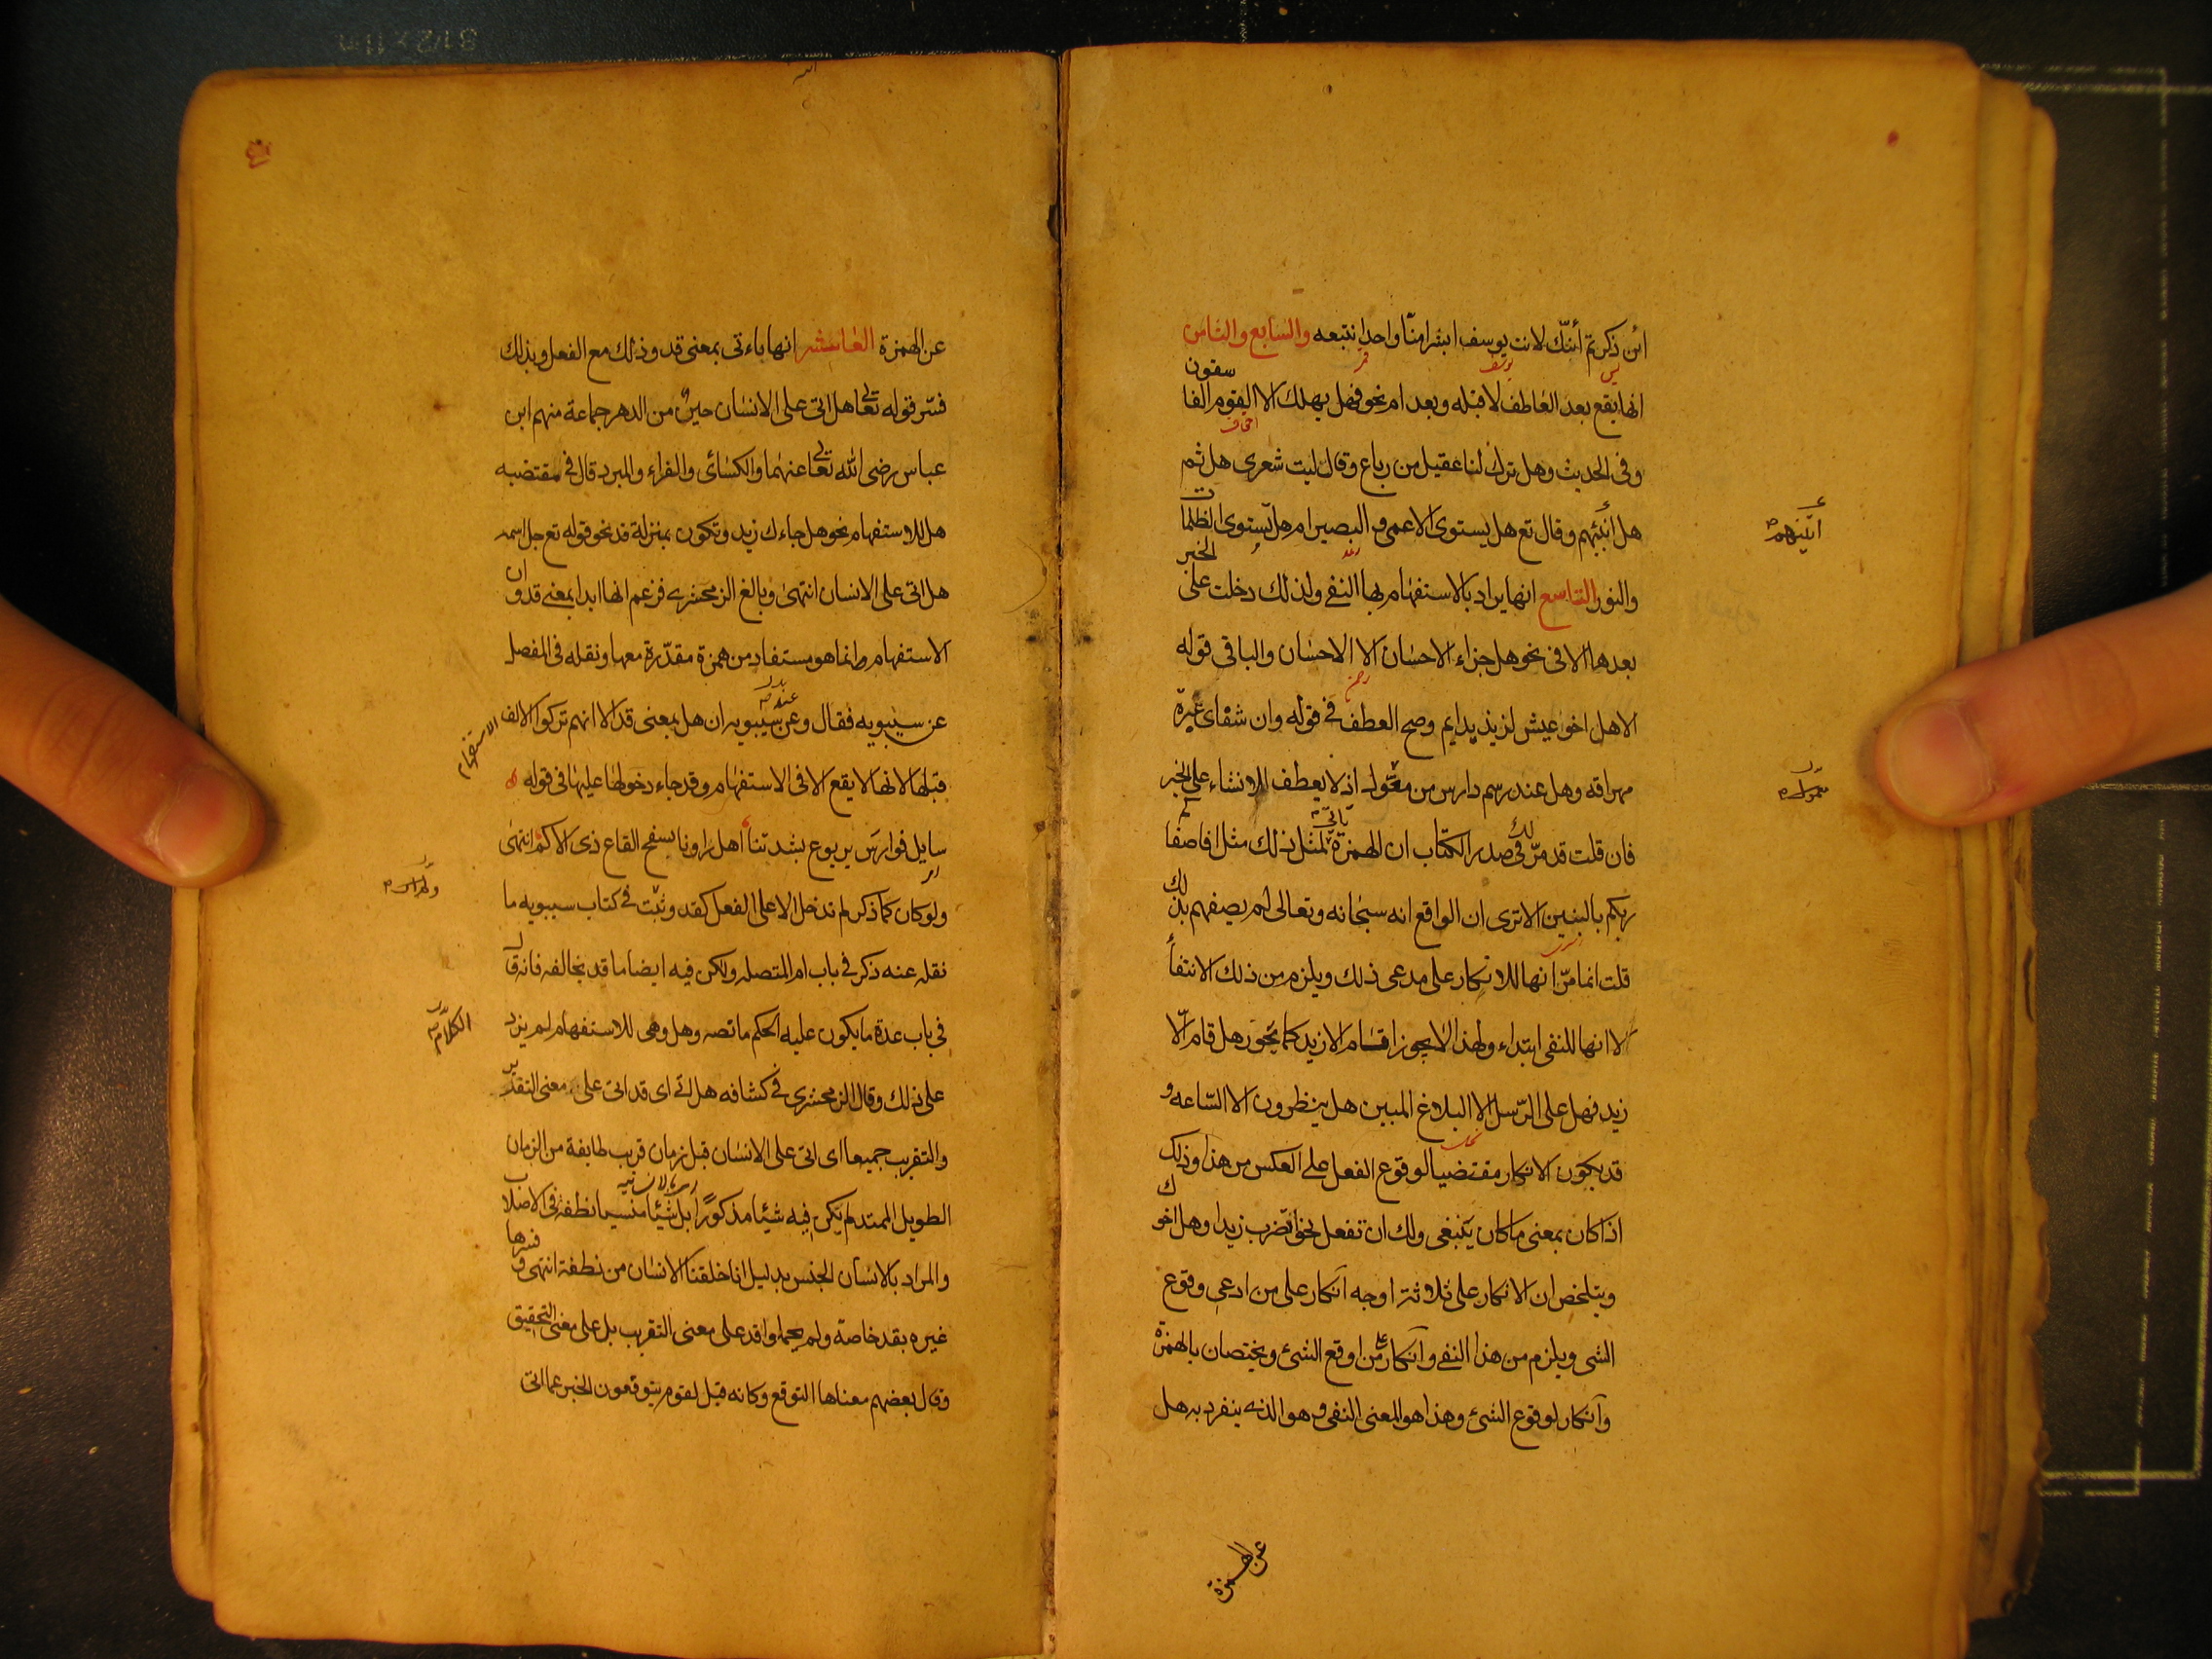 ائن ذكرتم أئنّك لانت يوسف ابشرا منّا واحدا نتبعه والسابع والثامن
انها يقع بعد العاطف لا قبله وبعد ام نحو فهل يهلك الا القوم الفا
سقون
وفى الحديث وهل ترك لنا عقيل من رباع وقال ليت شعرى هل ثم
هل أنبئهم وقال تع هل يستوى الاعمى والبصير ام هل تستوى الظلما
ت
والنور التاسع انها يراد بالاستفهام بها النفى ولذلك دخلت على
الخبر
بعدها الا فى نحو هل جزاء الاحسان الا الاحسان والباقى قوله
الا هل اخو عيش لذيذ بدايم وصح العطف فى قوله وان شفاى عبرة
مهراقه وهل عند رسم دارس من معول اذ لا يعطف للانشاء على الخبر
فان قلت قد مرّ لك فى صدر الكتاب ان الهمزة تأتى لمثل ذلك مثل افاصفا
كم
ربكم بالبنين الا ترى ان الواقع انه سبحانه وتعالى لم يصفهم بذ
لك
قلت انما مرّ انها للانكار على مدعى ذلك ويلزم من ذلك الانتفاء
لا انها للنفى ابتداء ولهذا لا يجوز اقسام الا زيد كما يجوز هل قام الّا
زيد فهل على الرّسل الا البلاغ المبين هل ينظرون الا السّاعه و
قد يكون الانكار مقتضيا لوقوع الفعل على العكس من هذا وذلك
اذا كان بمعنى ما كان ينبغى ولك ان تفعل نحو اتضرب زيدا وهل اخو
ك
ويتلخص ان الانكار على ثلاثة اوجه انكار على من ادعى وقوع
الشى ويلزم من هذا النفى وانكار على من اوقع الشئ ويختصان بالهمزة
وانكار لوقوع الشئ وهذا هو المعنى النفى وهو الذى ينفرد به هل
عن الهمزة
عن الهمزة العاشر انها ياءتى بمعنى قد وذلك مع الفعل وبذلك
فسّر قوله تعالى هل اتى على الانسان حين من الدهر جماعة منهم ابن
عباس رضى الله تعالى عنهما والكسائى والفراء والمبرد قال فى مقتضبه
هل للاستفهام نحو هل جاءك زيد وتكون بمنزلة قد نحو قوله تع جل اسمه
هل اتى على الانسان انتهى وبالغ الزمخشرى فزعم انها ابدا بمعنى قد و
ان
الاستفهام وانما هو مستفاد من همزة مقدّرة معها ونقله فى المفصل
عن سيبويه فقال وعن سيبويه ان هل بمعنى قد الا انهم تركوا الالف
الاستفهام
قبلها لانها لا يقع الا فى الاستفهام وقد جاء دخولها عليها فى قوله
سايل فوارس يربوع بشدتنا اهل راونا بسفح القاع ذى الاكم انتهى
ولو كان كما ذكر لم تدخل الا على الفعل كقد وثبت فى كتاب سيبويه ما
نقله عنه ذكر فى باب ام المتصله ولكن فيه ايضا ما قد يخالفه فانه قا
ل
فى باب عدة ما يكون عليه الحكم ما نصه وهل وهى للاستفهام لم يزد
الكلام
على ذلك وقال الزمخشرى فى كشافه هل اتى اى قد اتى على معنى التقدير
والتقريب جميعا اى اتى على الانسان قبل زمان قريب طايفة من الزمان
الطويل الممتد لم يكن فيه شيئا مذكورًا بل شيئا منسيا نطفة فى الاصلا
ب
والمراد بالانسان الجنس بدليل انا خلقنا الانسان من نطفة انتهى و
فسرها
غيره بقد خاصة ولم يحملوا قد على معنى التقريب بل على معنى التحقيق
وقال بعضهم معناها التوقع وكانه قيل لقوم يتوقعون الخبر عما اتى